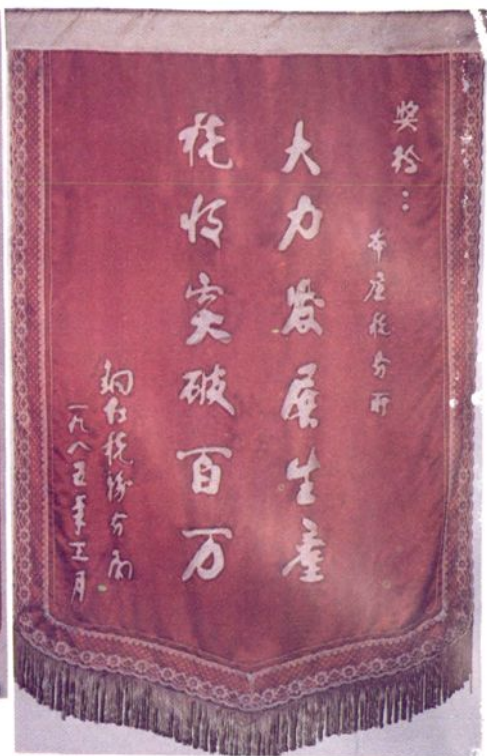 奖给：
税务所
大力发展生産
税收突破百万
税务分局
一九八五年月